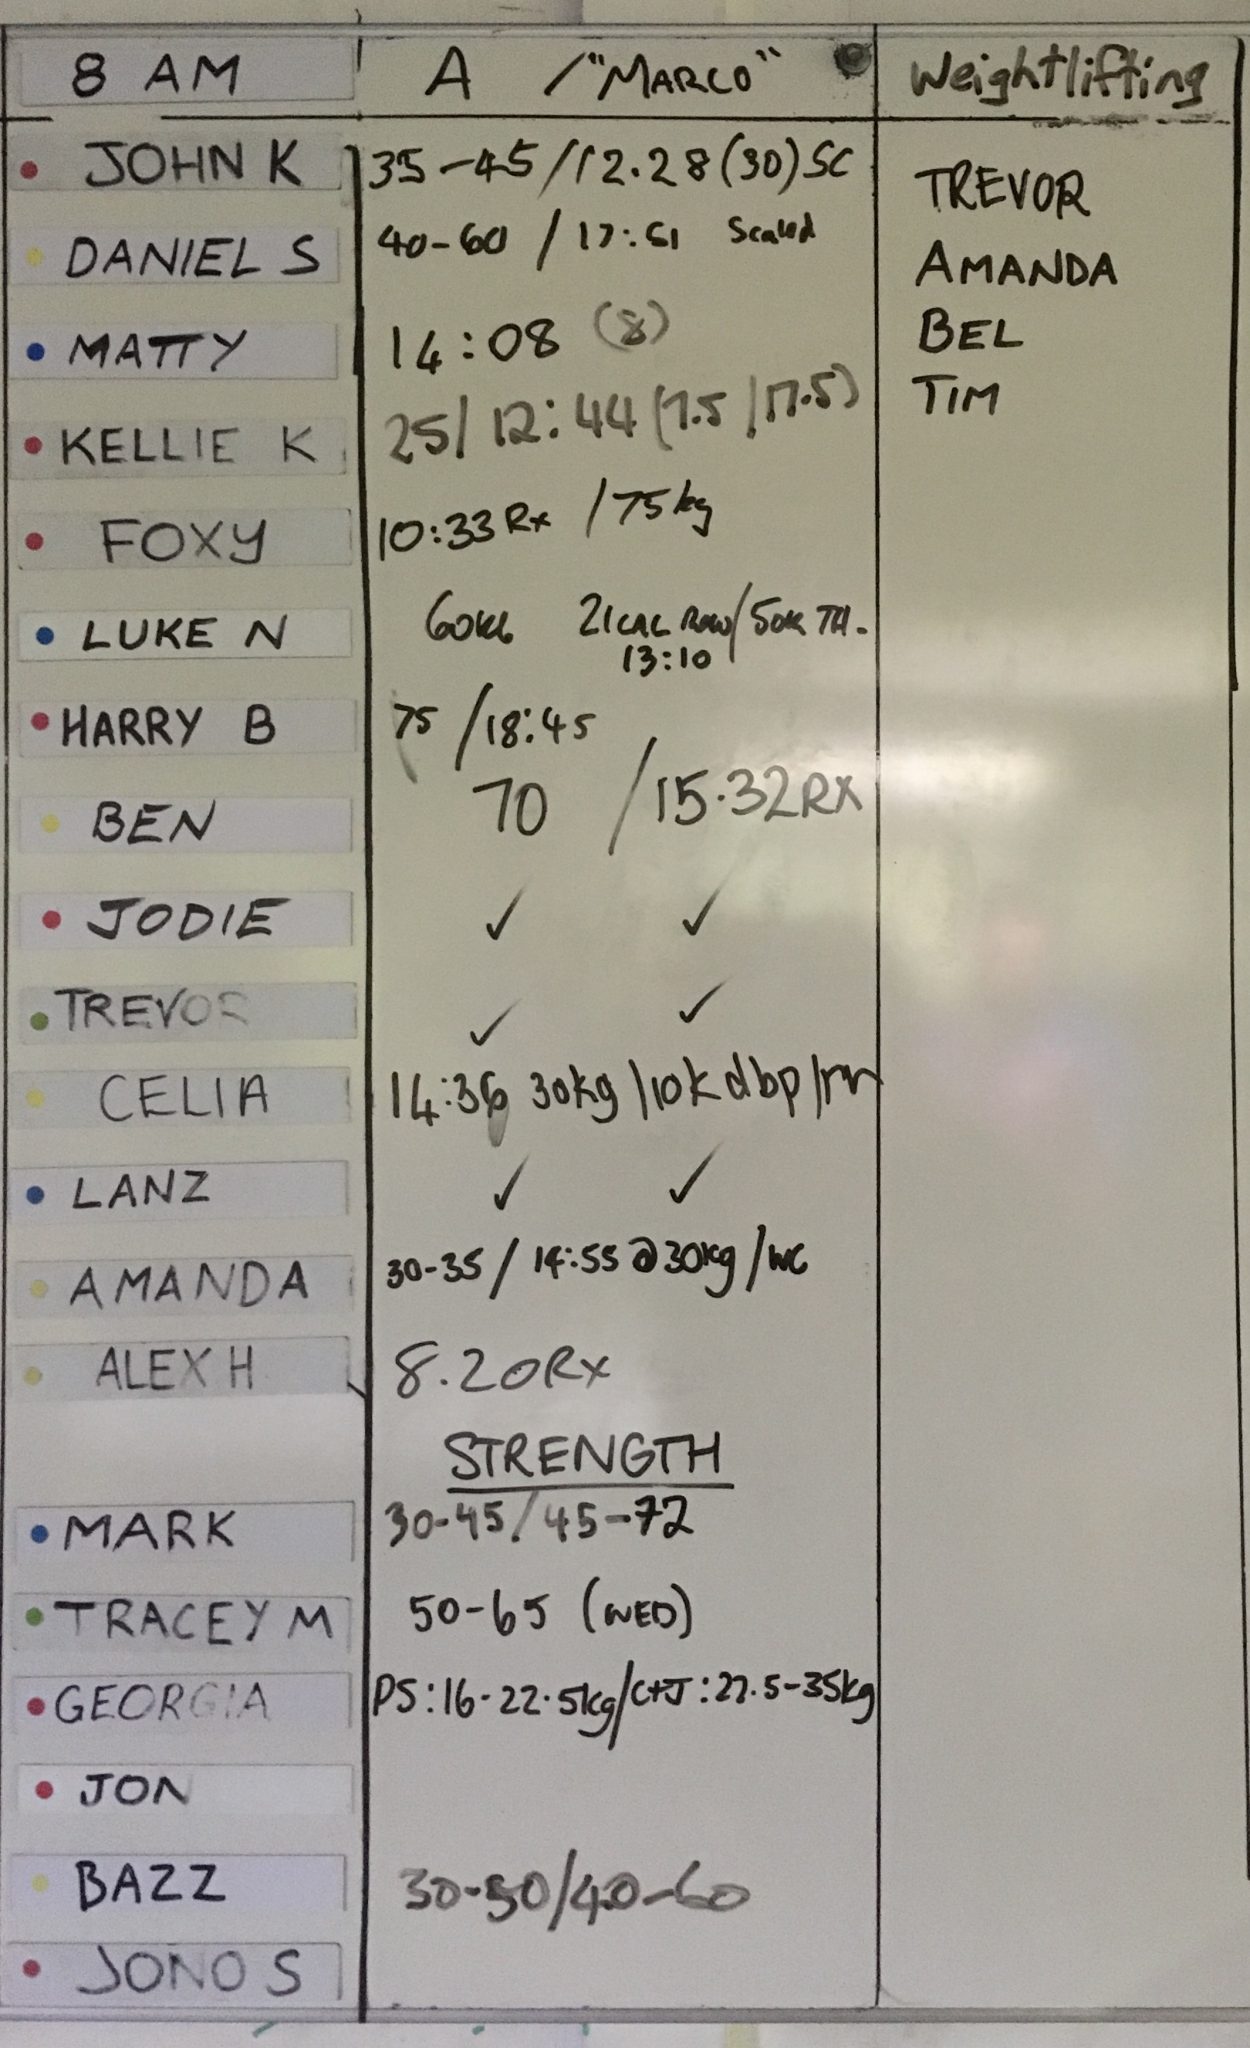 8 AM A /"MARCO" Weightlifting
JOHN K 35-45/12.28(30)SC TREVOR
DANIEL S 40-60 / 17:51 Scaled AMANDA
MATTY 14:08 (8) BEL
KELLIE K 25/12:44(7.5/17.5) TIM
FOXY 10:33 Rx /75kg
LUKE N 60KG 21CAL ROW/50K TH.
13:10
HARRY B 75 /18:45
BEN 70 /15.32RX
JODIE ✓ ✓
TREVOR ✓ ✓
CELIA 14:36 30kg/10k dbp/rr
LANZ ✓ ✓
AMANDA 30-35/14:55@30kg/WC
ALEX H 8.20Rx
STRENGTH
MARK 30-45/45-72
TRACEY M 50-65 (WED)
GEORGIA PS:16-22.5kg/C+J:27.5-35kg
JON
BAZZ 30-50/40-60
JONO S